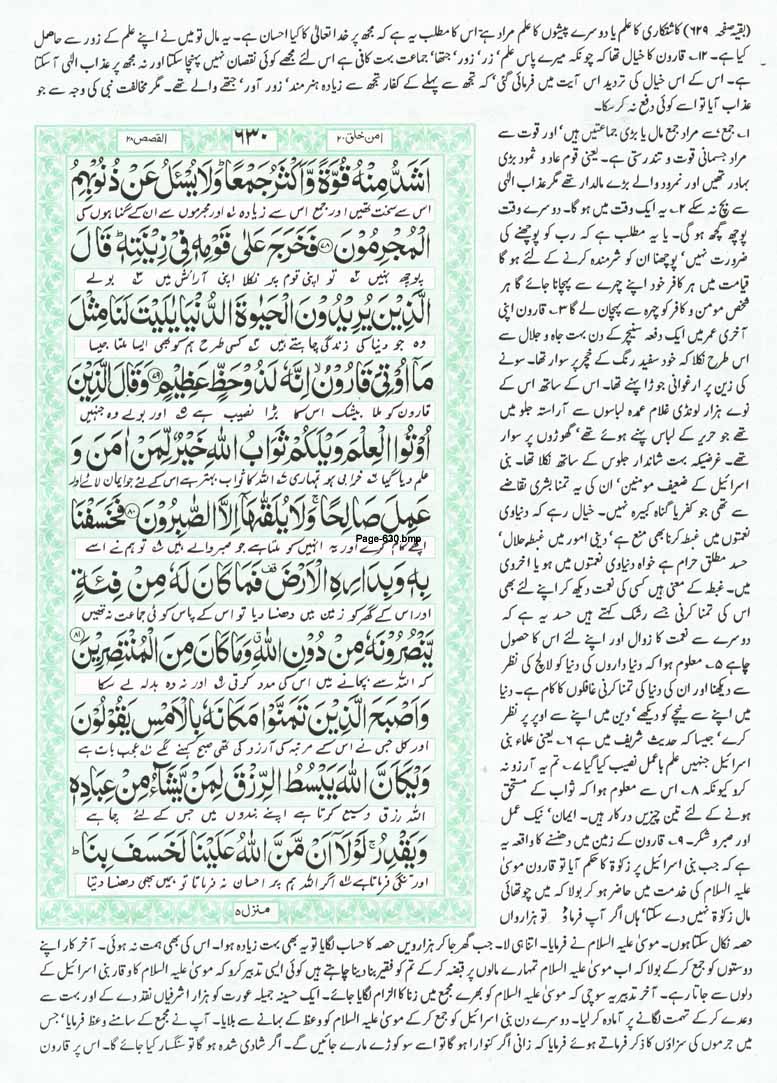 (بقیہ صفحہ ۶۲۹) کاشتکاری کا علم یا دوسرے پیشوں کا علم مراد ہے اس کا مطلب یہ ہے کہ مجھ پر خدا تعالیٰ کا کیا احسان ہے۔ یہ مال تو میں نے اپنے علم کے زور سے حاصل
کیا ہے۔ ۱۲۔ قارون کا خیال تھا کہ چونکہ میرے پاس علم' زر' زور' جتھا' جماعت بہت کافی ہے اس لئے مجھے کوئی نقصان نہیں پہنچا سکتا اور نہ مجھ پر عذاب الٰہی آ سکتا
ہے۔ اس کے اس خیال کی تردید اس آیت میں فرمائی گئی' کہ تجھ سے پہلے کے کفار تجھ سے زیادہ ہنرمند' زور آور' جتھے والے تھے۔ مگر مخالفت نبی کی وجہ سے جو
عذاب آیا تو اسے کوئی دفع نہ کر سکا۔
۱۔ جمع سے مراد جمع مال یا بڑی جماعتیں ہیں' اور قوت سے
مراد جسمانی قوت و تندرستی ہے۔ یعنی قوم عاد و ثمود بڑی
بہادر تھیں اور نمرود والے بڑے مالدار تھے مگر عذاب الٰہی
سے بچ نہ سکے ۲۔ یہ ایک وقت میں ہو گا۔ دوسرے وقت
پوچھ گچھ ہو گی۔ یا یہ مطلب ہے کہ رب کو پوچھنے کی
ضرورت نہیں' پوچھنا ان کو شرمندہ کرنے کے لئے ہو گا
قیامت میں ہر کافر خود اپنے چہرے سے پہچانا جائے گا ہر
شخص مومن و کافر کو چہرہ سے پہچان لے گا ۳۔ قارون اپنی
آخری عمر میں ایک دفعہ سنیچر کے دن بہت جاہ و جلال سے
اس طرح نکلا کہ خود سفید رنگ کے خچر پر سوار تھا۔ سونے
کی زین پر ارغوانی جوڑا پہنے تھا۔ اس کے ساتھ اس کے
نوے ہزار لونڈی غلام عمدہ لباسوں سے آراستہ جلو میں
تھے جو حریر کے لباس پہنے ہوئے تھے' گھوڑوں پر سوار
تھے۔ غرضیکہ بہت شاندار جلوس کے ساتھ نکلا تھا۔ بنی
اسرائیل کے ضعیف مومنین' ان کی یہ تمنا بشری تقاضے
سے تھی جو کفر یا گناہ کبیرہ نہیں۔ خیال رہے کہ دنیاوی
نعمتوں میں غبطہ کرنا بھی منع ہے' دینی امور میں غبطہ حلال'
حسد مطلق حرام ہے خواہ دنیاوی نعمتوں میں ہو یا اخروی
میں۔ غبطہ کے معنی ہیں کسی کی نعمت دیکھ کر اپنے لئے بھی
اس کی تمنا کرنی جسے رشک کہتے ہیں حسد یہ ہے کہ
دوسرے سے نعمت کا زوال اور اپنے لئے اس کا حصول
چاہے ۵۔ معلوم ہوا کہ دنیا داروں کی دنیا کو لالچ کی نظر
سے دیکھنا اور ان کی دنیا کی تمنا کرنی غافلوں کا کام ہے۔ دنیا
میں اپنے سے نیچے کو دیکھے' دین میں اپنے سے اوپر پر نظر
کرے' جیسا کہ حدیث شریف میں ہے ۶۔ یعنی علماء بنی
اسرائیل جنہیں علم باعمل نصیب کیا گیا ۷۔ تم یہ آرزو نہ
کرو کیونکہ ۸۔ اس سے معلوم ہوا کہ ثواب کے مستحق
ہونے کے لئے تین چیزیں درکار ہیں۔ ایمان' نیک عمل
اور صبر و شکر۔ ۹۔ قارون کے زمین میں دھنسنے کا واقعہ یہ
ہے کہ جب بنی اسرائیل پر زکوٰۃ کا حکم آیا تو قارون موسیٰ
علیہ السلام کی خدمت میں حاضر ہو کر بولا کہ میں چوتھائی
مال زکوٰۃ نہیں دے سکتا' ہاں اگر آپ فرماویں تو ہزارواں
امن خلق ۲۰ ۶۳۰ القصص ۲۸
اَشَدُّ مِنْهُ قُوَّةً وَّاَكْثَرُ جَمْعًا وَلَا يُسْئَلُ عَنْ ذُنُوْبِهِمُ
اس سے سخت تھیں اور جمع اس سے زیادہ ۱ اور مجرموں سے ان کے گناہوں کی
الْمُجْرِمُوْنَ ۷۸ فَخَرَجَ عَلٰى قَوْمِهٖ فِيْ زِيْنَتِهٖ قَالَ
پوچھ نہیں ۲ تو اپنی قوم پر نکلا اپنی آرائش میں ۳ بولے
الَّذِيْنَ يُرِيْدُوْنَ الْحَيٰوةَ الدُّنْيَا يٰلَيْتَ لَنَا مِثْلَ
وہ جو دنیا کی زندگی چاہتے ہیں ۴ کسی طرح ہم کو بھی ایسا ملتا جیسا
مَاۤ اُوْتِيَ قَارُوْنُ اِنَّهٗ لَذُوْ حَظٍّ عَظِيْمٍ ۷۹ وَقَالَ الَّذِيْنَ
قارون کو ملا بیشک اس کا بڑا نصیب ہے ۵ اور بولے وہ جنہیں
اُوْتُوا الْعِلْمَ وَيْلَكُمْ ثَوَابُ اللّٰهِ خَيْرٌ لِّمَنْ اٰمَنَ وَ
علم دیا گیا ۶ خرابی ہو تمہاری ۷ اللہ کا ثواب بہتر ہے اس کے لئے جو ایمان لائے اور
عَمِلَ صَالِحًا وَلَا يُلَقّٰىهَاۤ اِلَّا الصّٰبِرُوْنَ ۸۰ فَخَسَفْنَا
اچھے کام کرے اور یہ انہیں کو ملتا ہے جو صبر والے ہیں ۸ تو ہم نے اسے
Page-630.bmp
بِهٖ وَبِدَارِهِ الْاَرْضَ فَمَا كَانَ لَهٗ مِنْ فِئَةٍ
اور اس کے گھر کو زمین میں دھنسا دیا تو اس کے پاس کوئی جماعت نہ تھی
يَّنْصُرُوْنَهٗ مِنْ دُوْنِ اللّٰهِ وَمَا كَانَ مِنَ الْمُنْتَصِرِيْنَ ۸۱
کہ اللہ سے بچانے میں اس کی مدد کرتی اور نہ وہ بدلہ لے سکا
وَاَصْبَحَ الَّذِيْنَ تَمَنَّوْا مَكَانَهٗ بِالْاَمْسِ يَقُوْلُوْنَ
اور کل جس نے اس کے مرتبہ کی آرزو کی تھی صبح کہنے لگے عجب بات ہے
وَيْكَاَنَّ اللّٰهَ يَبْسُطُ الرِّزْقَ لِمَنْ يَّشَآءُ مِنْ عِبَادِهٖ
اللہ رزق وسیع کرتا ہے اپنے بندوں میں جس کے لئے چاہے
وَيَقْدِرُ لَوْلَاۤ اَنْ مَّنَّ اللّٰهُ عَلَيْنَا لَخَسَفَ بِنَا
اور تنگی فرماتا ہے اگر اللہ ہم پر احسان نہ فرماتا تو ہمیں بھی دھنسا دیتا
منزل ۵
حصہ نکال سکتا ہوں۔ موسیٰ علیہ السلام نے فرمایا۔ اتنا ہی لا۔ جب گھر جا کر ہزارویں حصہ کا حساب لگایا تو یہ بھی بہت زیادہ ہوا۔ اس کی بھی ہمت نہ ہوئی۔ آخر کار اپنے
دوستوں کو جمع کر کے بولا کہ اب موسیٰ علیہ السلام تمہارے مالوں پر قبضہ کر کے تم کو فقیر بنا دینا چاہتے ہیں کوئی ایسی تدبیر کرو کہ موسیٰ علیہ السلام کا وقار بنی اسرائیل کے
دلوں سے جاتا رہے۔ آخر تدبیر یہ سوچی کہ موسیٰ علیہ السلام کو بھرے مجمع میں زنا کا الزام لگایا جائے۔ ایک حسینہ جمیلہ عورت کو ہزار اشرفیاں نقد دے کے اور بہت سے
وعدے کر کے تہمت لگانے پر آمادہ کر لیا۔ دوسرے دن بنی اسرائیل کو جمع کر کے موسیٰ علیہ السلام کو وعظ کے بہانے سے بلایا۔ آپ نے مجمع کے سامنے وعظ فرمایا' جس
میں جرموں کی سزاؤں کا ذکر فرماتے ہوئے فرمایا کہ زانی اگر کنوارا ہو گا تو اسے سو کوڑے مارے جائیں گے۔ اگر شادی شدہ ہو گا تو سنگسار کیا جائے گا۔ اس پر قارون